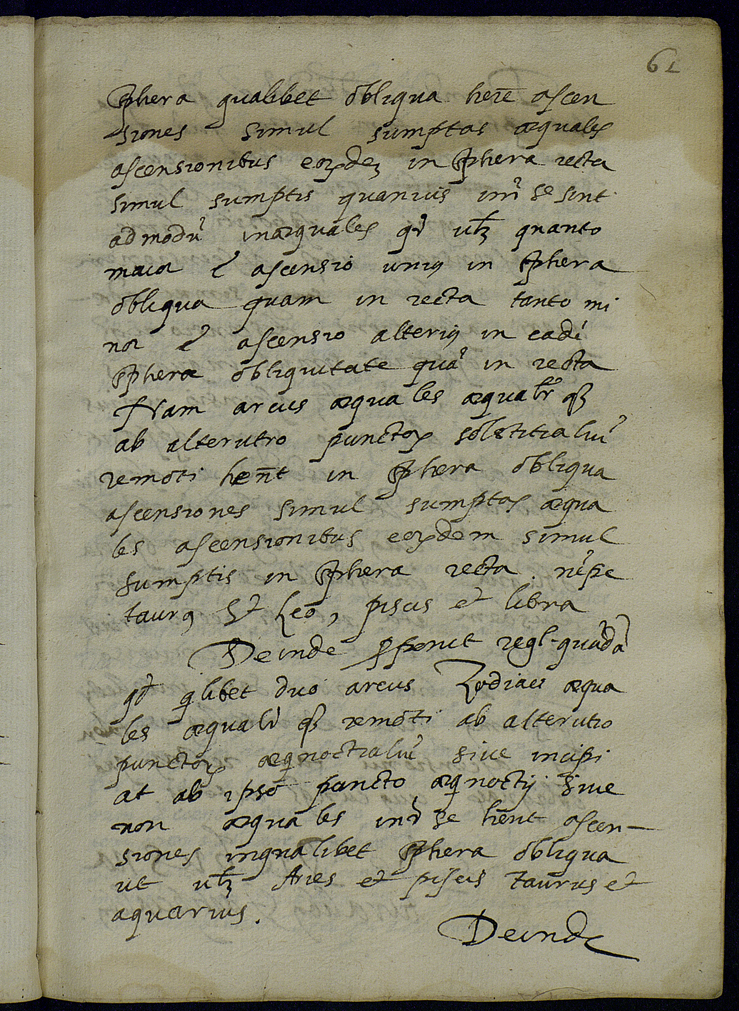 61
sphera qualibet obliqua here ascen
siones simul sumptas æquales
ascensionibus eorũdẽ in sphera recta
simul sumptis quamvis intr̃ se sint
admodũ inæquales qđ utz quanto
maior ẽ ascensio uniꝰ in sphera
obliqua quam in recta tanto mi
nor ẽ ascensio alteriꝰ in eadẽ
spheræ obliquitate quã in recta
Nam arcus æquales æqualr̃ qꝫ
ab alterutro punctoꝝ solstitialiũ
remoti hent in sphera obliqua
ascensiones simul sumptas æqua
les ascensionibus eoꝝdem simul
sumptis in sphera recta nẽpe
taurꝰ et Leo, piscis et libra
Deinde ꝓponit regl. quãdã
qđ qlibet duo arcus Zodiaci æqua
les æqualr̃ qꝫ remoti ab alterutro
punctoꝝ æqnoctialiũ sive incipi
at ab ipso puncto æqnoctij sive
non æquales intr̃ se hent ascen-
siones in qualibet sphera obliqua
ut utz Aries et piscis taurus et
aquarius.
Deinde